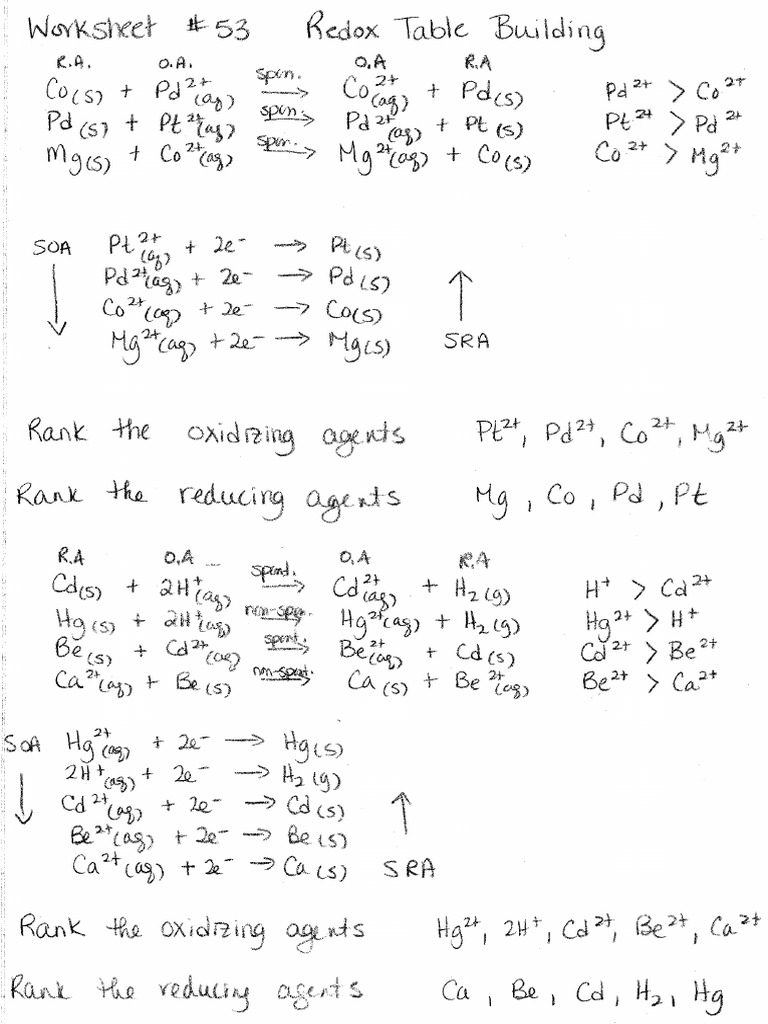 Worksheet #53 Redox Table Building
R.A. O.A. O.A R.A
Co(s) + Pd²⁺(aq) spon. → Co²⁺(aq) + Pd(s) Pd²⁺ > Co²⁺
Pd(s) + Pt²⁺(aq) spon. → Pd²⁺(aq) + Pt(s) Pt²⁺ > Pd²⁺
Mg(s) + Co²⁺(aq) spon. → Mg²⁺(aq) + Co(s) Co²⁺ > Mg²⁺
SOA Pt²⁺(aq) + 2e⁻ → Pt(s)
Pd²⁺(aq) + 2e⁻ → Pd(s)
Co²⁺(aq) + 2e⁻ → Co(s)
Mg²⁺(aq) + 2e⁻ → Mg(s) SRA
Rank the oxidizing agents Pt²⁺, Pd²⁺, Co²⁺, Mg²⁺
Rank the reducing agents Mg, Co, Pd, Pt
R.A O.A O.A R.A
Cd(s) + 2H⁺(aq) spont. → Cd²⁺(aq) + H₂(g) H⁺ > Cd²⁺
Hg(s) + 2H⁺(aq) non-spon. → Hg²⁺(aq) + H₂(g) Hg²⁺ > H⁺
Be(s) + Cd²⁺(aq) spont. → Be²⁺(aq) + Cd(s) Cd²⁺ > Be²⁺
Ca²⁺(aq) + Be(s) non-spont. → Ca(s) + Be²⁺(aq) Be²⁺ > Ca²⁺
SOA Hg²⁺(aq) + 2e⁻ → Hg(s)
2H⁺(aq) + 2e⁻ → H₂(g)
Cd²⁺(aq) + 2e⁻ → Cd(s)
Be²⁺(aq) + 2e⁻ → Be(s)
Ca²⁺(aq) + 2e⁻ → Ca(s) SRA
Rank the oxidizing agents Hg²⁺, 2H⁺, Cd²⁺, Be²⁺, Ca²⁺
Rank the reducing agents Ca, Be, Cd, H₂, Hg